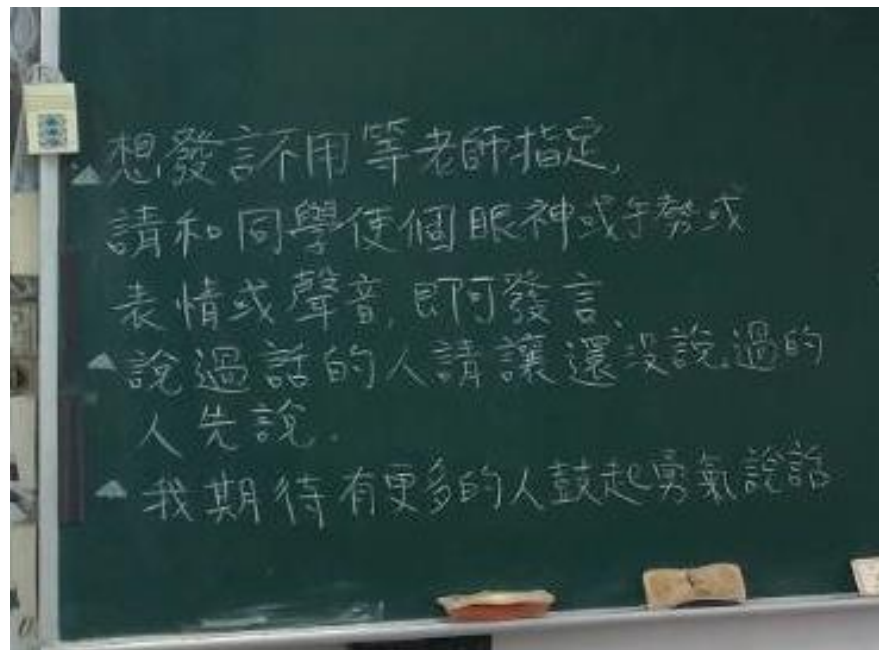 ▲想發言不用等老師指定,
請和同學使個眼神或手勢或
表情或聲音,即可發言、
▲說過話的人請讓還没說過的
人先說.
▲我期待有更多的人鼓起勇氣說話